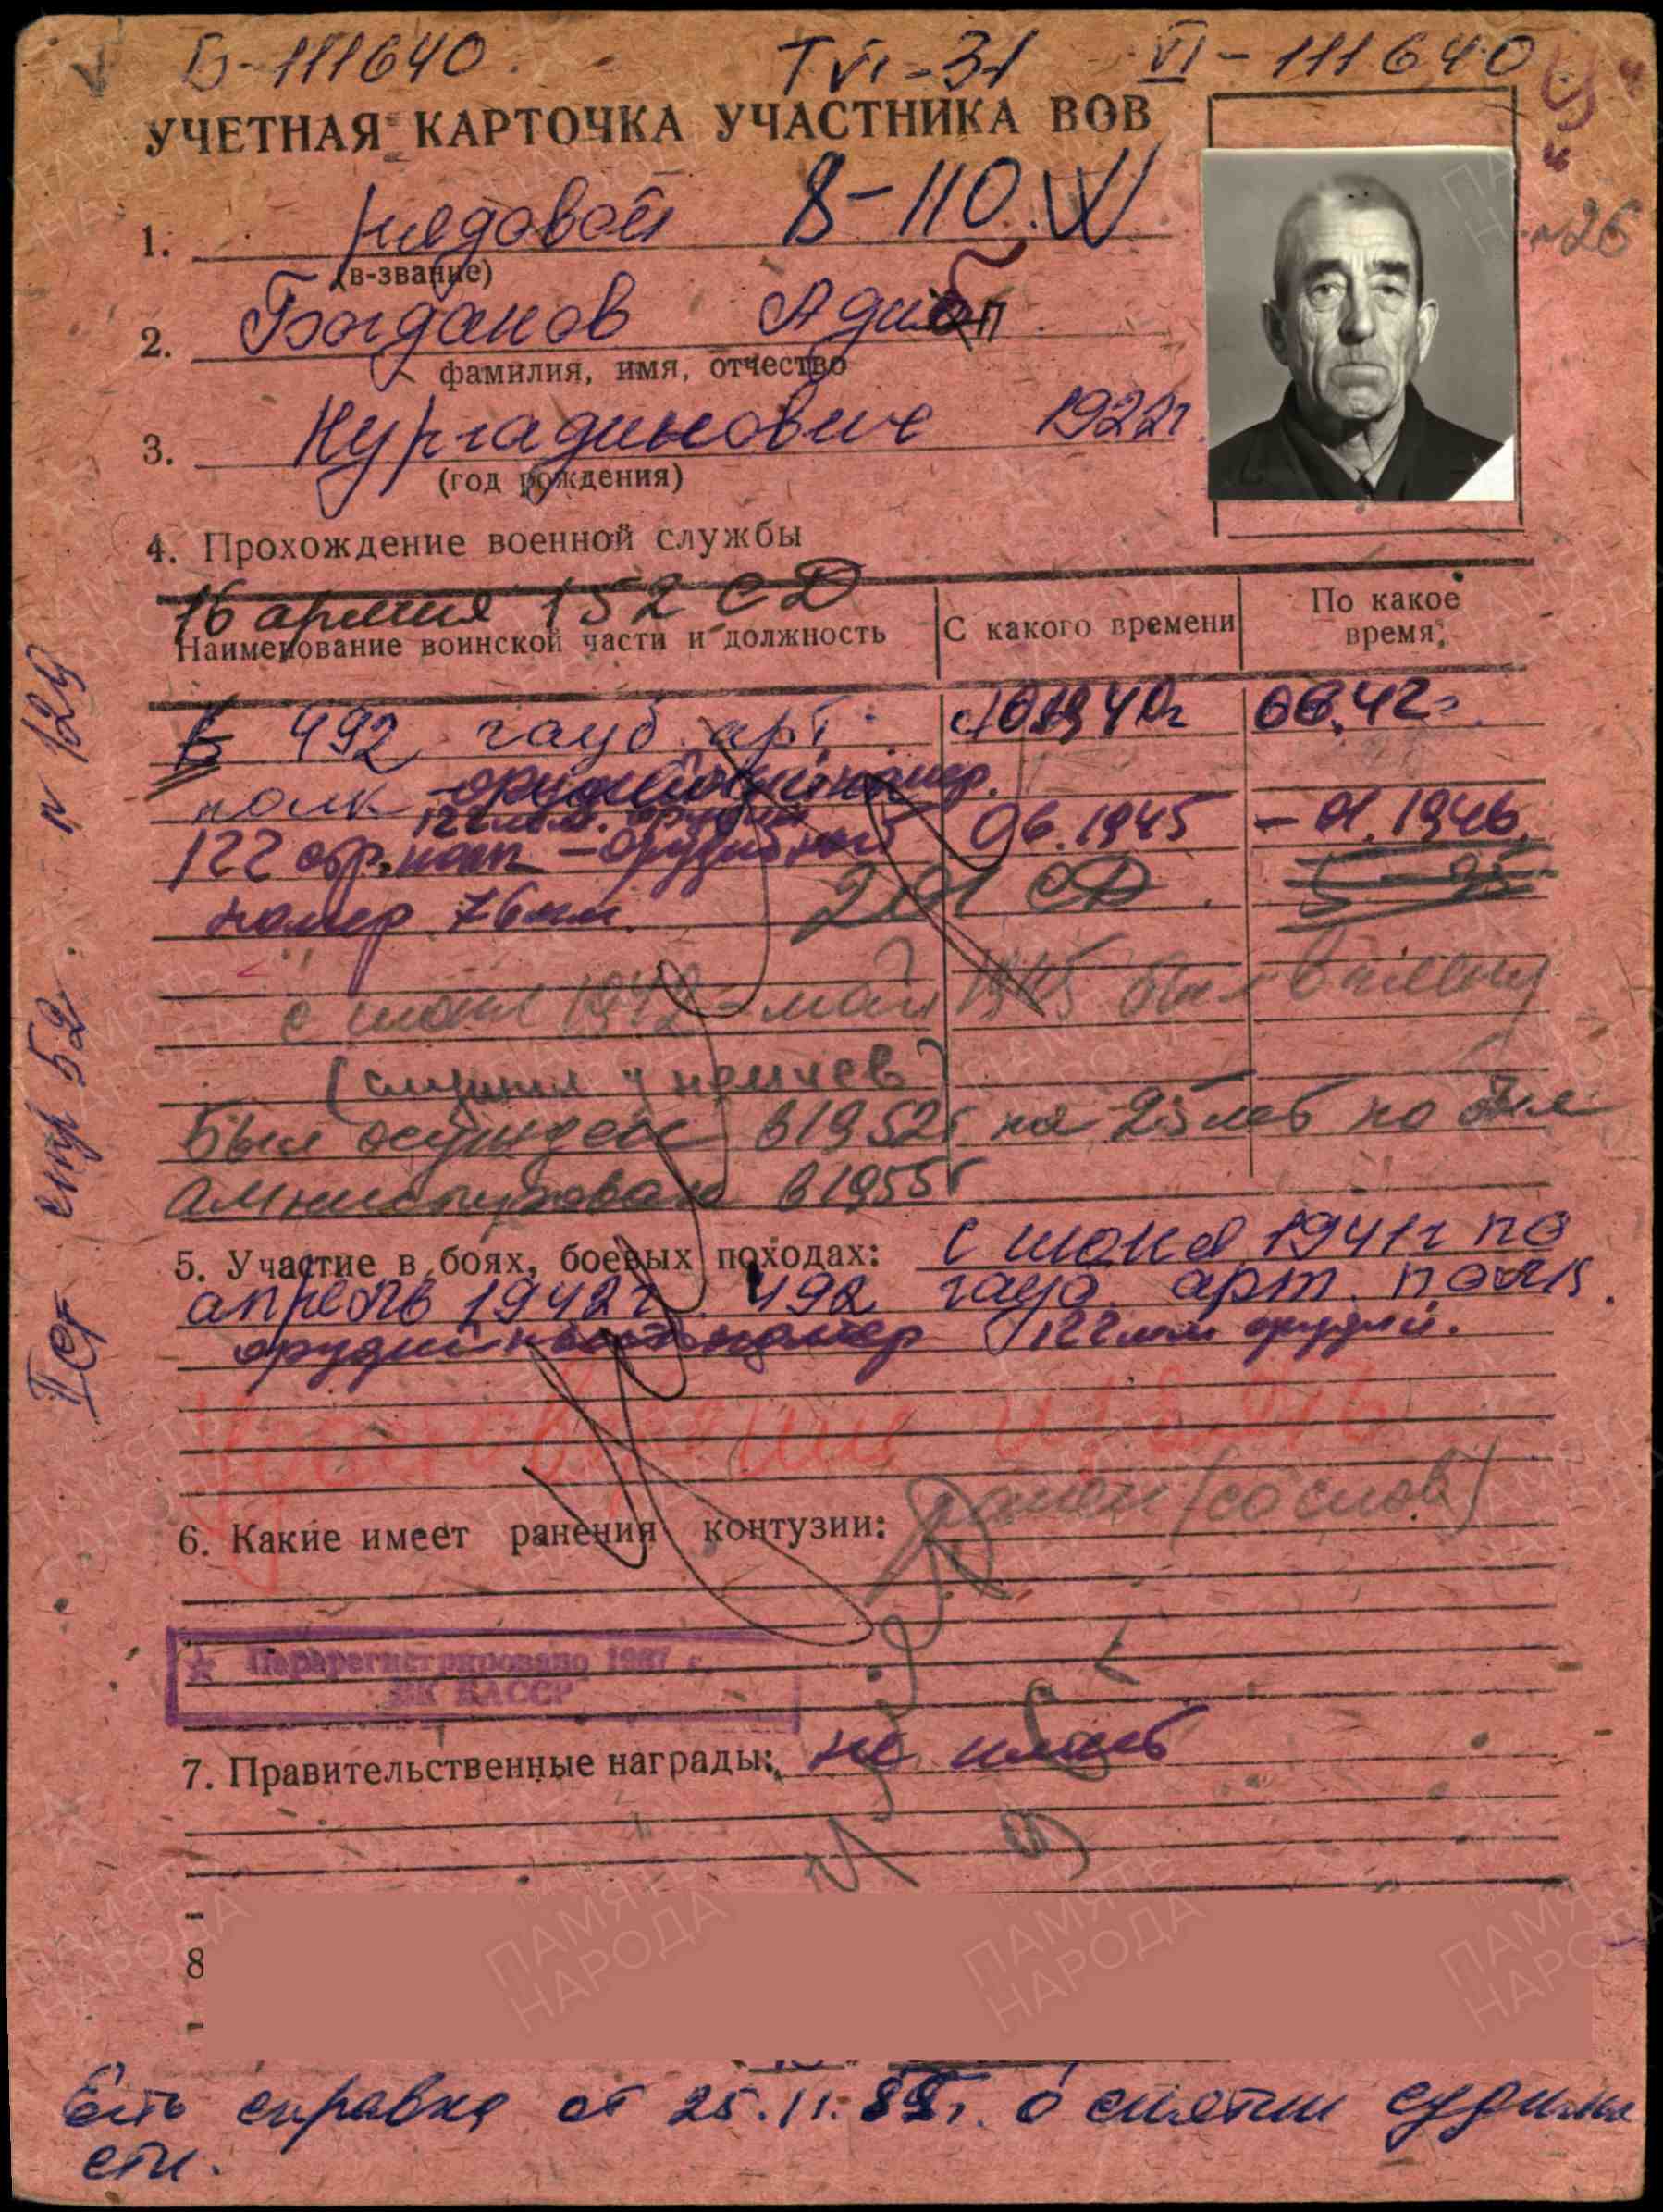 Б-111640 Т VI-31 VI-111640
УЧЕТНАЯ КАРТОЧКА УЧАСТНИКА ВОВ
1. рядовой 8-110
(в-звание)
№26
2. Богданов
фамилия, имя, отчество
3. Нургадинович 1922г.
(год рождения)
4. Прохождение военной службы
16 армия 152 СД
Наименование воинской части и должность
С какого времени
По какое время:
492 гауб. арт. 06.42г.
полк - орудийный номер.
122 мм. орудий
122 арт. полк - орудийный 06.1945 - 01.1946
номер 76 мм. 291 СД
с июня 1942 - май 1945 был в плену
(служил у немцев)
Был осужден в 1952г на 25 лет но был
амнистирован в 1955г
5. Участие в боях, боевых походах: с июня 1941г по
апрель 1942г. 492 гауб. арт. полк.
орудийный номер 122 мм орудий.
Удостоверение изъять
6. Какие имеет ранения контузии: ранен (со слов)
Перерегистрировано 1987 г.
ВК БАССР
7. Правительственные награды: не имеет
8
Есть справка от 25.11. о снятии судимо
сти.
стр 52 п 129
ПАМЯТЬ НАРОДА